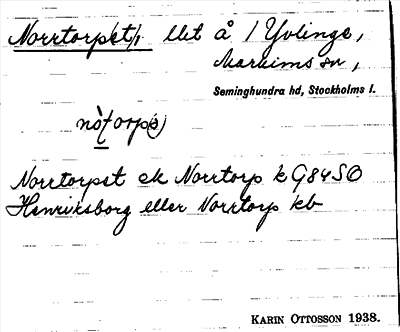 Norrtorpet, lht å / Yvlinge,
Markims sn,
Seminghundra hd, Stockholms l.
nòtorp(ə)
Norrtorpet ek Norrtorp k G84SO
Henriksborg eller Norrtorp kb
KARIN OTTOSSON 1938.